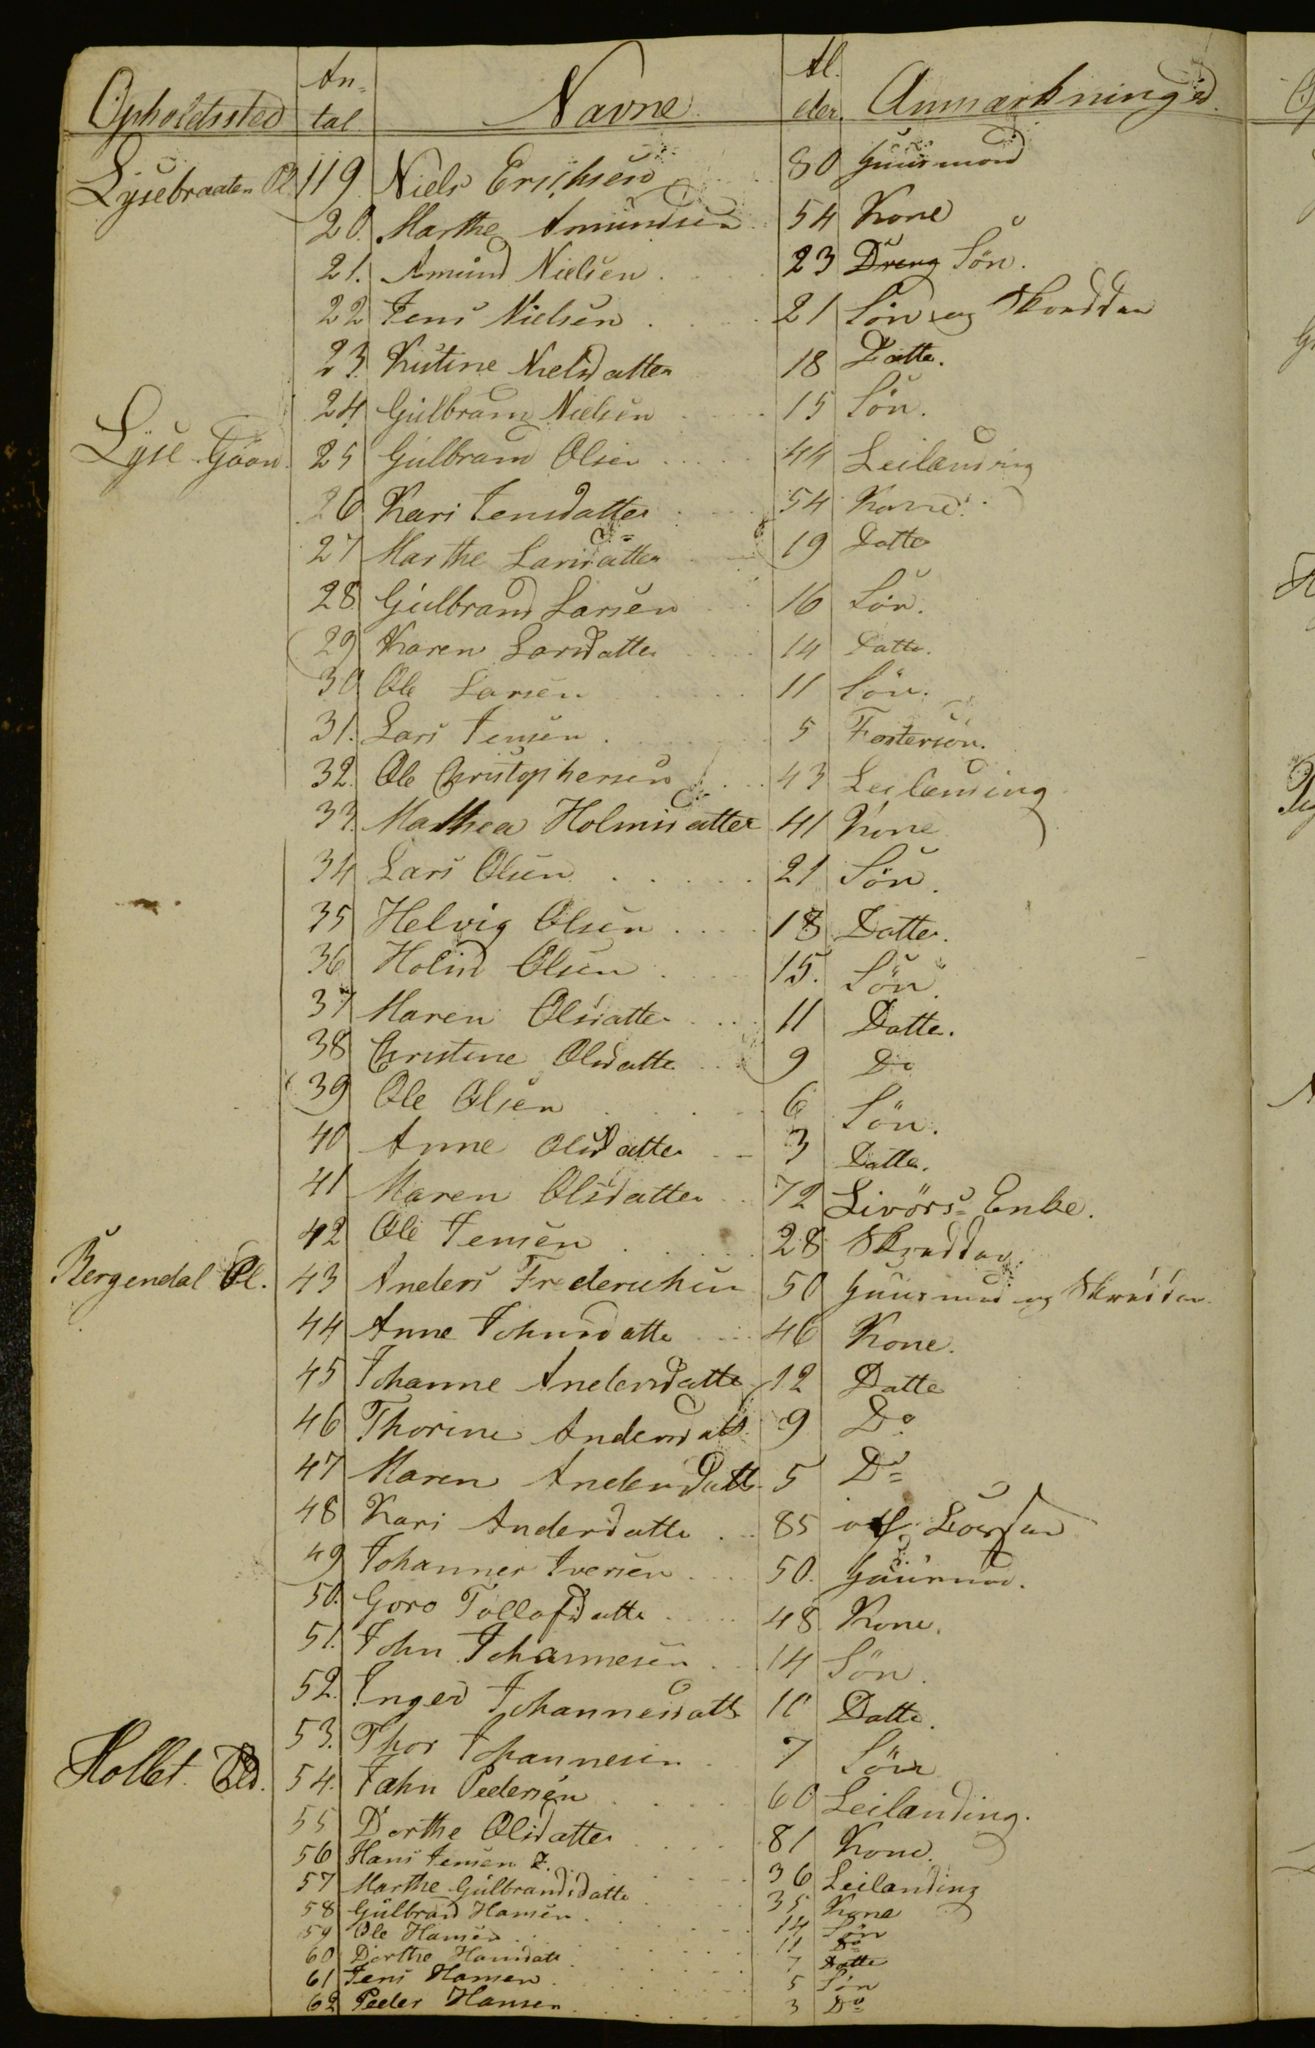 Opholdssted An-tal Navne Al-der Anmærkninger
Lysebraaten Pl 119 Niels Erichsen 80 Huusmand
20. Marthe Amundsen 54 Kone
21. Amund Nielsen 23 Dreng Søn.
22 Jens Nielsen 21 Søn og Skrædder
23. Kistine Nielsdatter 18 Datte.
24 Gulbrand Nielsen 15 Søn.
Lyse Gaar 25 Gulbrand Olsen 44 Leilænding
26 Kari Jensdatter 54 Kone
27 Marthe Larsdatter 19 Datter
28 Gulbrand Larsen 16 Søn.
29 Karen Larsdatter 14 Datte.
30 Ole Larsen 11 Søn.
31. Lars Jensen 5 Fostersøn.
32. Ole Christophersen 43 Leilænding
33. Mathea Holmsdatter 41 Kone
34 Lars Olsen 21 Søn.
35 Helvig Olsen 18 Datter.
36 Olsen 15. Søn.
37 Maren Olsdatter 11 Datte.
38 Christine Olsdatte 9 Do
39 Ole Olsen 6 Søn.
40 Anne Olsdatter 3 Datte.
41 Maren Olsdatter 72 Livörs- Enke.
42 Ole Jensen 28 Skrædder
Bergendal Pl. 43 Anders Frederichsen 50 Huusmand og Skrædder
44 Anne Johnsdatte 46 Kone.
45 Johanne Andersdatte 12 Datte
46 Thorine Andersdatt. 9 Do
47 Maren Andersdatt. 5 Do
48 Kari Andersdatte 85
49 Johannes Iversen 50. Huusmand.
50. Goro Tollofsdatte 48 Kone.
51. John Johannesen 14 Søn.
52. Inger Johannesdatt 10 Datte.
53. Thor Johannesen 7 Søn
Hollet 54. Jahn Pedersen 60 Leilænding.
55 Dorthe Olsdatter 81 Kone.
56 Hans Jensen 36 Leilænding
57 Marthe Gulbrandsdatte 35 Kone
58 Gulbrand Hansen 14 Søn
59 Ole Hansen 11 Do
60 Dorthe Hansdatt 7 Datte
61 Jens Hansen 5 Søn
62 Peder Hansen 3 Do